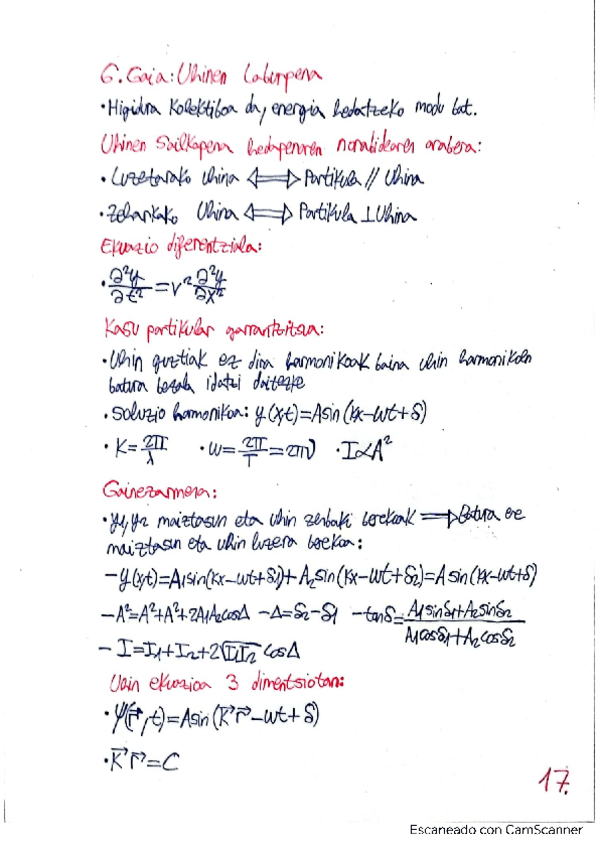 6. Gaia: Uhinen Laburpena
• Higidura Kolektiboa da, energia hedatzeko modu bat.
Uhinen Sailkapena hedapenaren norabidearen arabera:
• Luzetarako Uhina ⟺ Partikula // Uhina
• Zeharkako Uhina ⟺ Partikula ⊥ Uhina
Ekuazio diferentziala:
• ∂²y/∂t² = v² ∂²y/∂x²
Kasu partikular garrantzitsua:
• Uhin guztiak ez dira harmonikoak baina uhin harmonikoen
batura bezala idatzi daitezke
• Soluzio harmonikoa: y(x,t)=Asin(kx-wt+δ)
• K=2π/λ • w=2π/T=2πν • I∝A²
Gainezarmena:
• y1, y2 maiztasun eta uhin zenbaki berekoak ⟹ Batura ere
maiztasun eta uhin luzera berekoa:
- y(x,t)=A1sin(kx-wt+δ1)+A2sin(kx-wt+δ2)=Asin(kx-wt+δ)
- A²=A²+A²+2A1A2cosΔ - Δ=δ2-δ1 - tanδ=A1sinδ1+A2sinδ2/A1cosδ1+A2cosδ2
- I=I1+I2+2√I1I2 cosΔ
Uhin ekuazioa 3 dimentsiotan:
• Ψ(r⃗,t)=Asin(K⃗r⃗-wt+δ)
• K⃗r⃗=C
17.
Escaneado con CamScanner